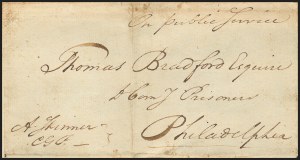 On public Service
Thomas Bradford Esquire
D Com y Prisoners
Philadelphia
A Skinner
CGP